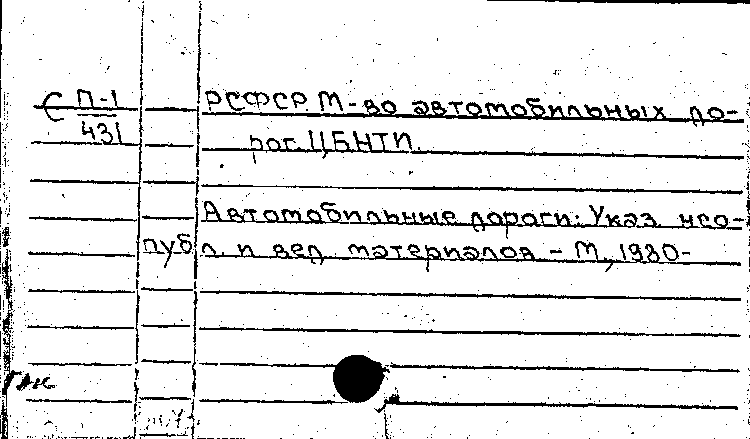 С П-1
431
РСФСР М-во автомобильных до-
рог. ЦБНТИ.
Автомобильные дороги: Указ. нео-
публ. и вед. материалов - М, 1980-